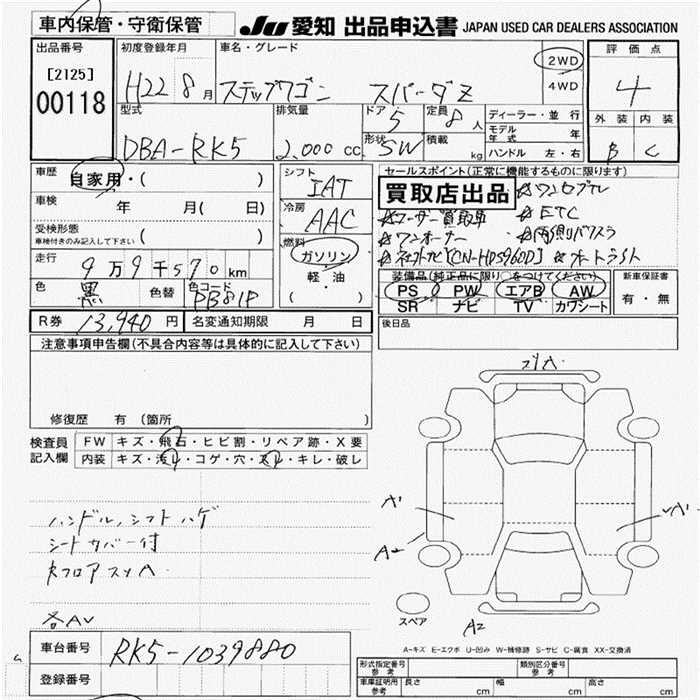 車内保管・守衛保管
JU 愛知 出品申込書 JAPAN USED CAR DEALERS ASSOCIATION
出品番号
[2125]
00118
初度登録年月
H22 8月
車名・グレード
ステップワゴン スパーダZ
2WD
4WD
評価点
4
外装 内装
B C
型式
DBA-RK5
排気量
2,000 cc
ドア
5
定員
8人
形状
SW
積載
kg
ディーラー・並行
モデル年式 年
ハンドル 左・右
車歴
自家用・( )
車検 年 月( 日)
受検形態
車検付きのみ記入して下さい ( )
走行
9万9千570km
色
黒
色替
色コード
PB81P
シフト
IAT
冷房
AAC
燃料
ガソリン
軽・油
( )
セールスポイント(正常に機能するものに限ります)
買取店出品
☆ワンセグTV
☆ユーザー買取車
☆ETC
☆ワンオーナー
☆両側パワスラ
☆ネットナビ[CN-HDS960D]
☆オートライト
装備品(純正品に限り○をつけてください)
PS PW エアB AW
SR ナビ TV カワシート
新車保証書
有・無
R券 13,940円
名変通知期限 月 日
後日品
注意事項申告欄(不具合内容等は具体的に記入して下さい)
修復歴 有(箇所 )
検査員記入欄
FW キズ・飛石・ヒビ割・リペア跡・X要
内装 キズ・汚レ・コゲ・穴・スレ・キレ・破レ
ハンドル、シフトハゲ
シートカバー付
各AV
A'
A2
A2
スペア
A-キズ E-エクボ U-凹み W-補修跡 S-サビ C-腐食 XX-交換済
車台番号
RK5-1039880
登録番号
形式指定番号
参考
類別区分番号
参考
車庫証明用
参考
長さ cm
幅 cm
高さ cm